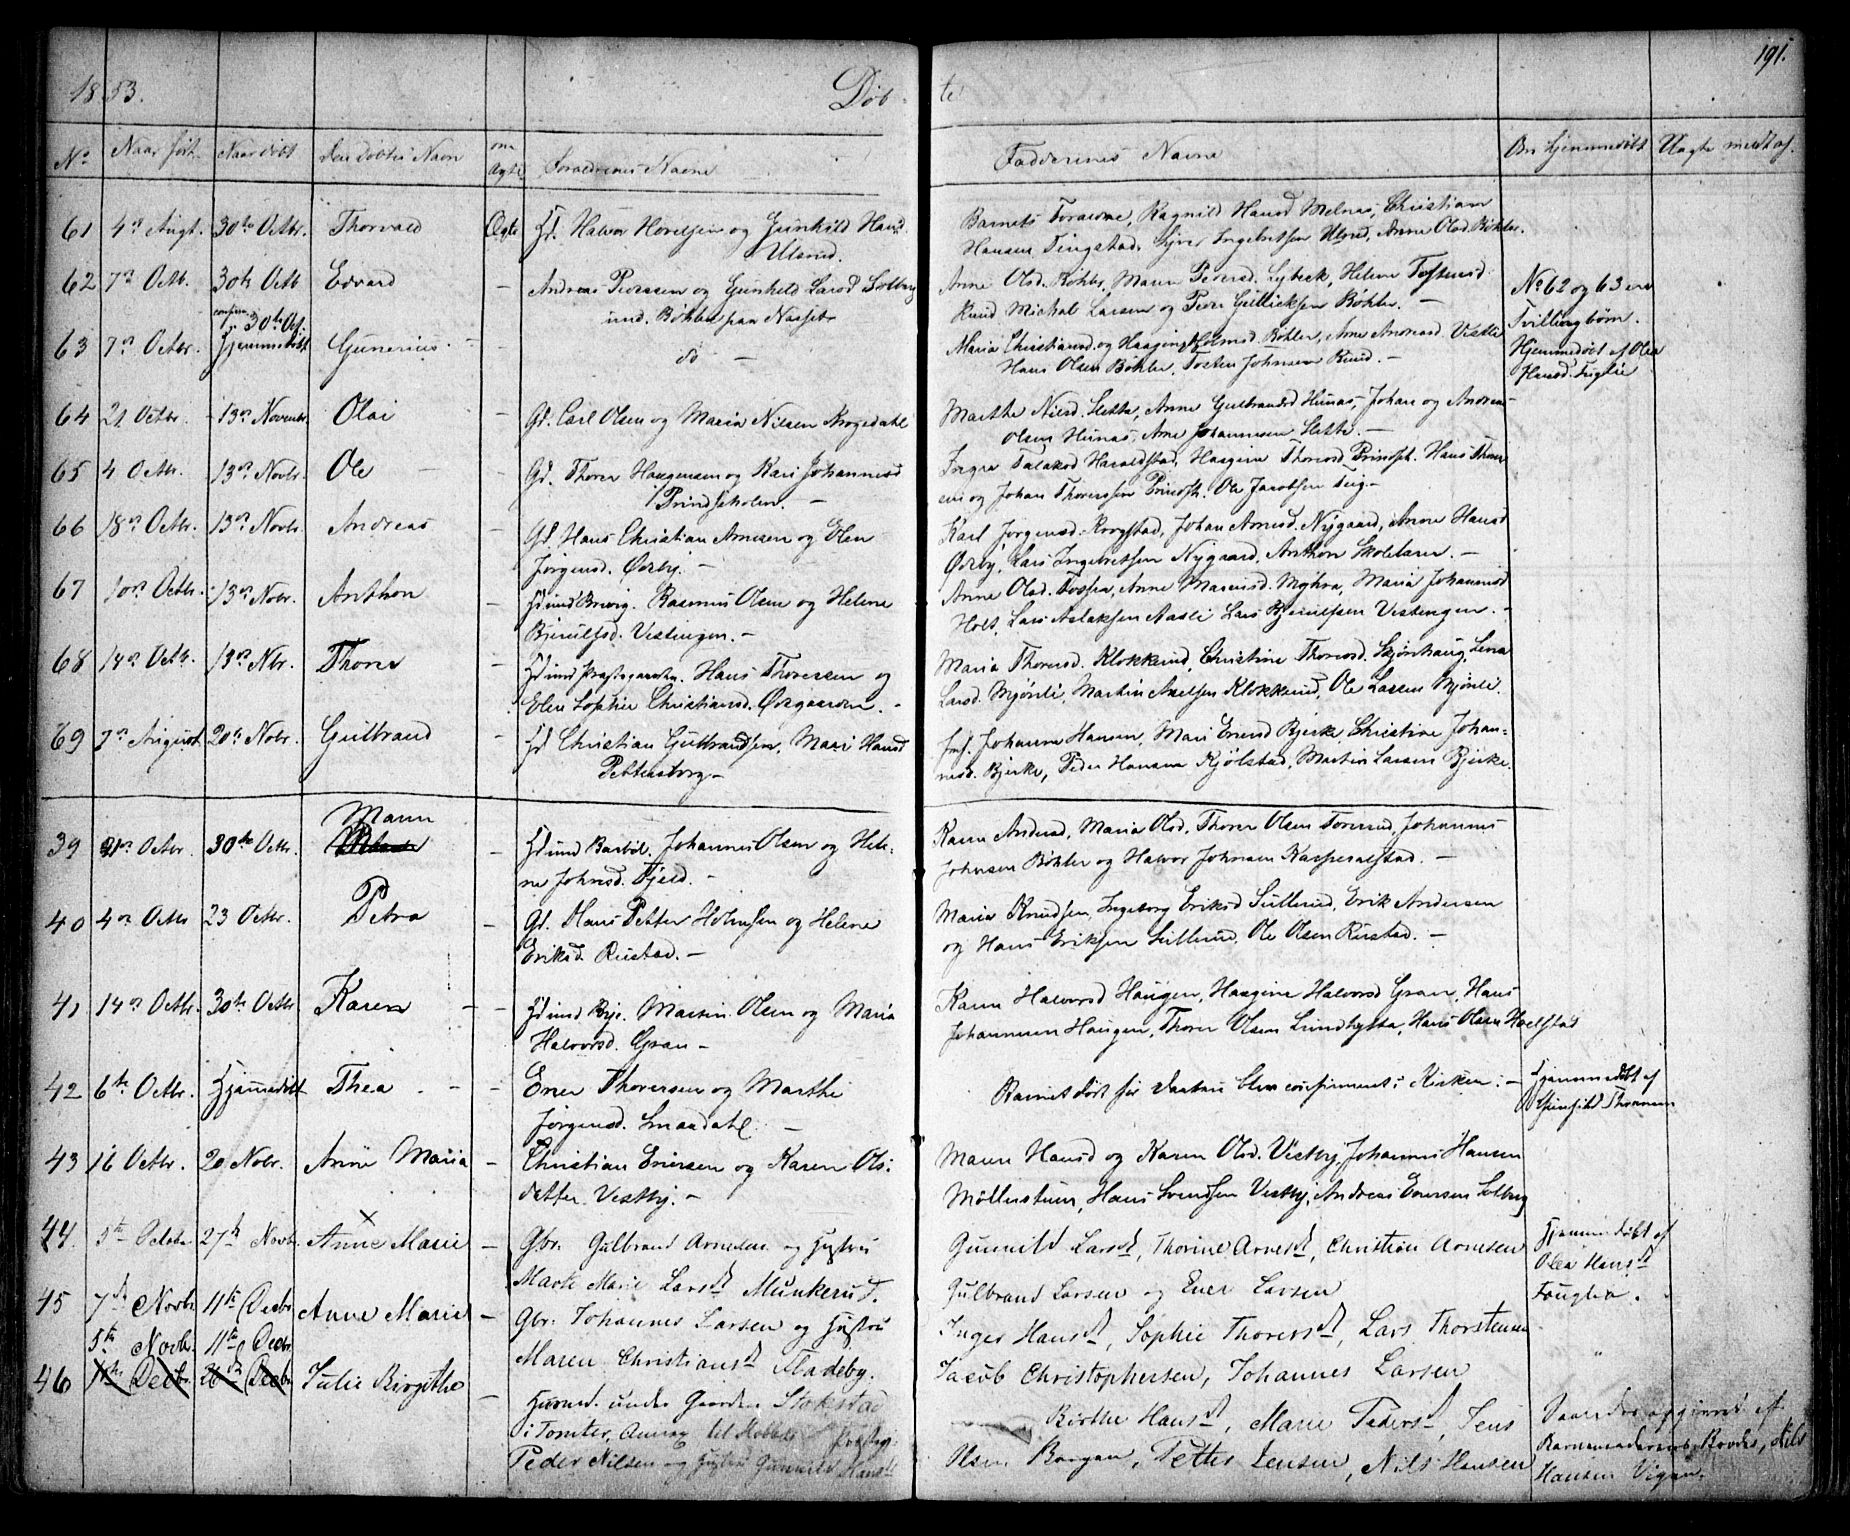 191.
1853.
Døb-
te
No
Naar født.
Naar døbt
Den Døbtes Navn
om Ægte
Forældrenes Navne
Faddernes Navne
Om hjemmedøbt
Uægte med af
61 4de Augt. 30te Octbr. Thorvald Ægte Hd. Halvor Hovelsen og Gunhild Hansd
Ulsrud.
Barnets Forældre, Ragnild Hansd Melnæs, Christian
Hansen Tingstad, Syver Ingebretsen Ulsrud, Anne Olsd Bøhler.
62 7de Octb. 30te Octb Edvard – Andreas Pedersen og Gunhild Larsd Solberg
und. Bøhler paa Næsset
Anne Olsd. Bøhler, Maren Pedersd. Lybeck, Helene
Knud Michal Larsen og Peder Gullicksen Bøhler. –
No 62 og 63 ere
Tvillingbørn.
63 7de Octbr. confirm. 30te Oct. Hjemmedøbt Gunerius – do –
Maria Christiansd. og Haagine Holmsd. Bøhler, Ane Andreasd. Vestli
Hans Olsen Bøhler, Tosten Johnsen Rud. –
Hjemmedøbt af Olea
Hansd. Fuglie
64 21 Octbr. 13de Novembr. Olai – Gd. Carl Olsen og Maria Nilsen Krogsdahl
Marthe Nilsd. Slette, Anne Gulbrandsd Hunæs, Johan og Andreas
Olsen Hunæs, Arne Johannesen Slette. –
65 4 Octbr. 13de Novbr. Ole – Gd. Thorer Haagensen og Kari Johannesd
Prindseholen. –
Haraldstad, Haagine Thoresd. Hans Thore-
sen og Johan Thoressen Ole Jacobsen
66 18de Octbr. 13de Novbr. Andreas – Gd. Hans Christian Arnesen og Elen
Jørgensd. Ørby. –
Kari Jørgensd. Krogstad, Johan Arnesd. Nygaard, Anne Hansd
Ørby, Lars Ingebretsen Nygaard, Anthon Skolelærer. –
67 10de Octbr. 13de Nobr. Anthon – Hd und Brevig. Rasmus Olsen og Helene
Bjerulfsd. Vestengen. –
Anne Olsd. Anne Marensd. Myhra, Maria Johannesd
Holt, Lars Aslaksen Aasli Lars Bjerulfsen Vestengen. –
68 14de Octb. 13de Nbr. Thorer – Hd und Præstegaarden. Hans Thoressen og
Elen Sophie Christiansd. Øvregaarden. –
Maria Thoresd. Klokkerud, Christine Thoresd. Skjønhaug, Lena
Larsd. Mjønli, Martin Axelsen Klokkerud, Ole Larsen Mjønli.
69 7de August 20de Nobr. Gulbrand – Hd Christian Gulbrandsen, Mari Hansd
Pettersborg –
Johanne Hansen, Mari Enersd Bjerke, Christine Johan-
nesd. Bjerke, Peder Hansen Kjølstad, Martin Larsen Bjerke.
39 21de Octbr. 30te Octbr. Maren – Hd und Barbøl. Johannes Olsen og Hele-
ne Johnsd. Fjeld. –
Karen Andersd, Maria Olsd. Thorer Olsen Johannes
Johnsen Bøhler og Halvor Johnsen Kasperalstad. –
40 4de Octbr 23 Octbr. Petra – Gd. Hans Petter Holmsen og Helene
Eriksd. Rustad. –
Maria Knudsen, Ingeborg Eriksd Sullerud, Erik Andersen
og Hans Eriksen Sullerud, Ole Olsen Rustad. –
41 14de Octbr. 30te Octbr. Karen – Hd und Bye. Martin Olsen og Maria
Halvorsd. Gran –
Karen Halvorsd Haugen, Haagine Halvorsd Gran, Hans
Johannesen Haugen, Thorer Olsen Lundhytta, Hans Olsen Hoelstad
42 6te Octbr. Hjemmedøbt Thea – – Ener Thoresen og Marthe
Jørgensd. Smaadahl –
Barnet døde før Daaben blev confirmeret i Kirken. –
Hjemmedøbt af
Thoresen
43 16 Octbr. 20 Nobr. Anne Maria – Christian Enersen og Karen Ols-
datter Vestby. –
Maren Hansd og Karen Olsd. Vestby, Johannes Hansen
Møllerstuen, Hans Svendsen Vestby, Andreas Enersen Solberg
44. 5te October 27de Novbr. Anne Marie – Gbr. Gulbrand Arnesen og Hustru
Marte Marie Larsd Munkerud.
Gunnild Larsd, Thorine Arnesd, Christian Arnesen
Gulbrand Larsen og Ener Larsen
Hjemmedøbt af
Olea Hansd
Fouglia.
45 7de Novbr 11te Decbr Anne Marie – Gbr. Johannes Larsen og Hustru
Maren Christiansd Fladeby.
Inger Hansd, Sophie Thoresd, Lars Thorstensen
Jacob Christophersen, Johannes Larsen
46 5te Novb. 11te Decbr. Julie Birgithe – Husmd. under Gaarden Stokstad
i Tomter, Annex til Hobbøls Præstegj.
Peder Nilsen og Hustru Gunnild Hansd
Birthe Hansd, Marie Pedersd, Jens
Olsen Borgen, Petter Jensen, Nils Hansen
Daaben af
Barnemoderens Broder, Nils
Hansen Vigan.